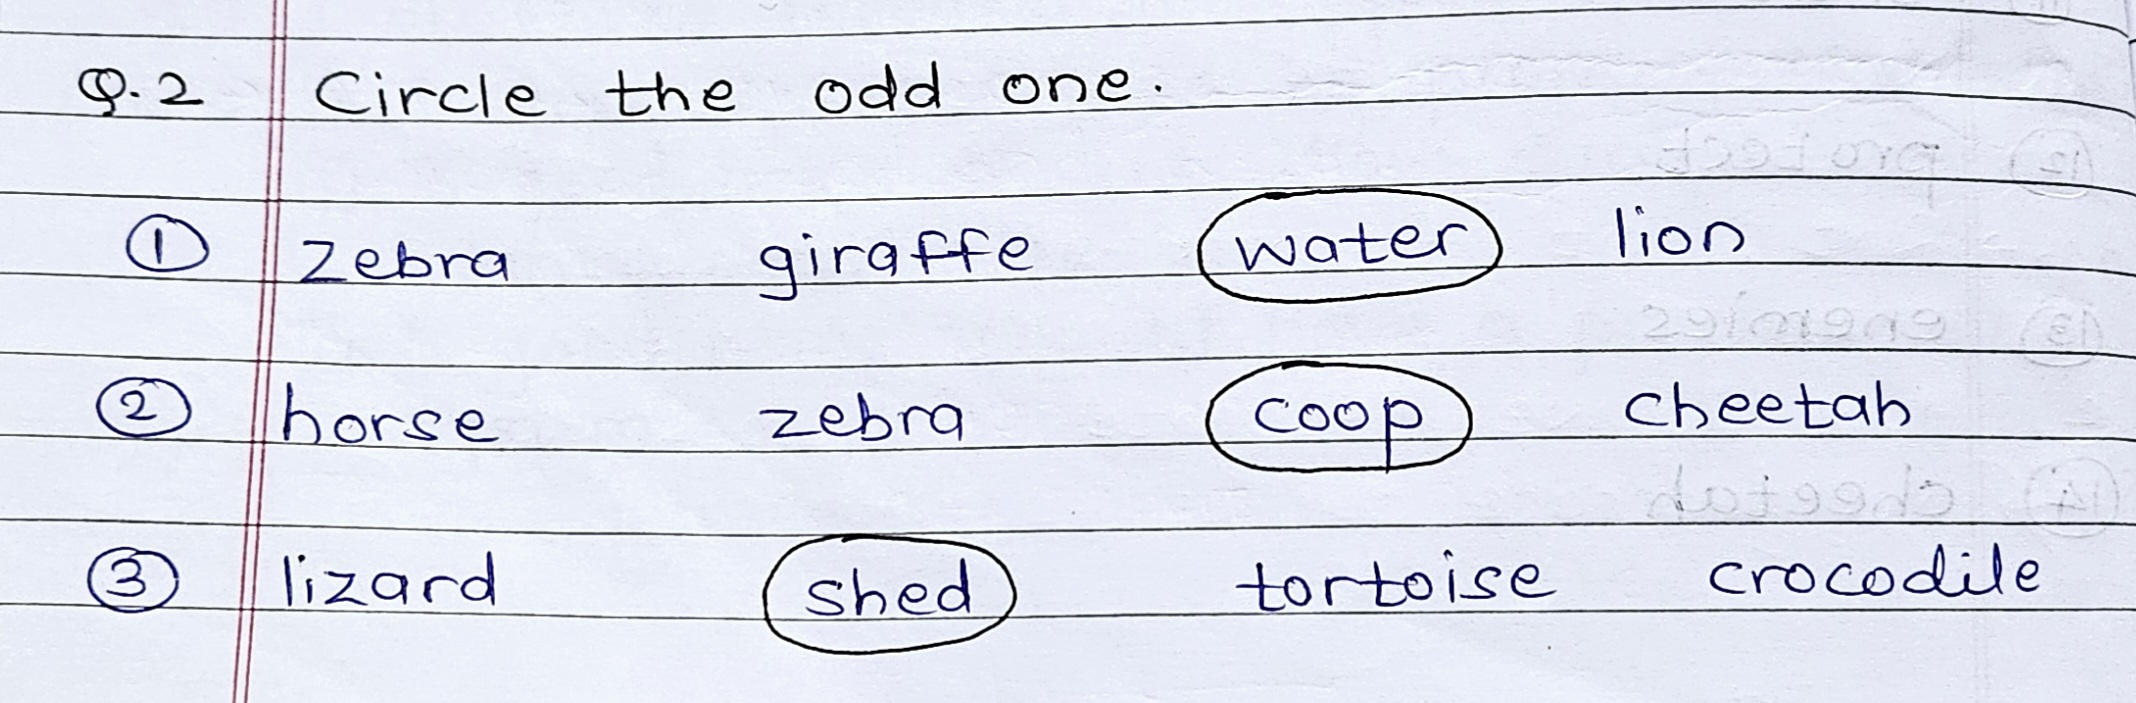 Q.2 Circle the odd one.
① zebra giraffe water lion
② horse zebra coop cheetah
③ lizard shed tortoise crocodile